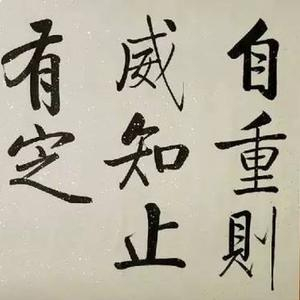 自重則
威知止
有定